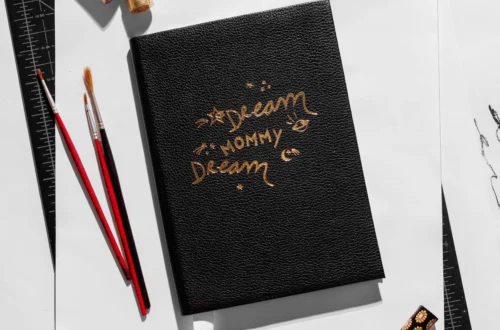 Dream
MOMMY
Dream